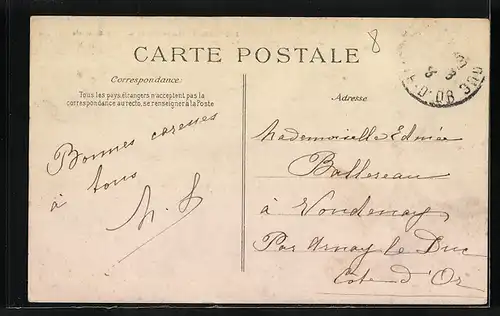 8
CARTE POSTALE
Correspondance
Tous les pays étrangers n'acceptent pas la
correspondance au recto, se renseigner à la Poste
Bonnes caresses
à tous
Adresse
Mademoiselle Edmée
Ballereau
à Voudenay
Par Arnay le Duc
Côte d'Or